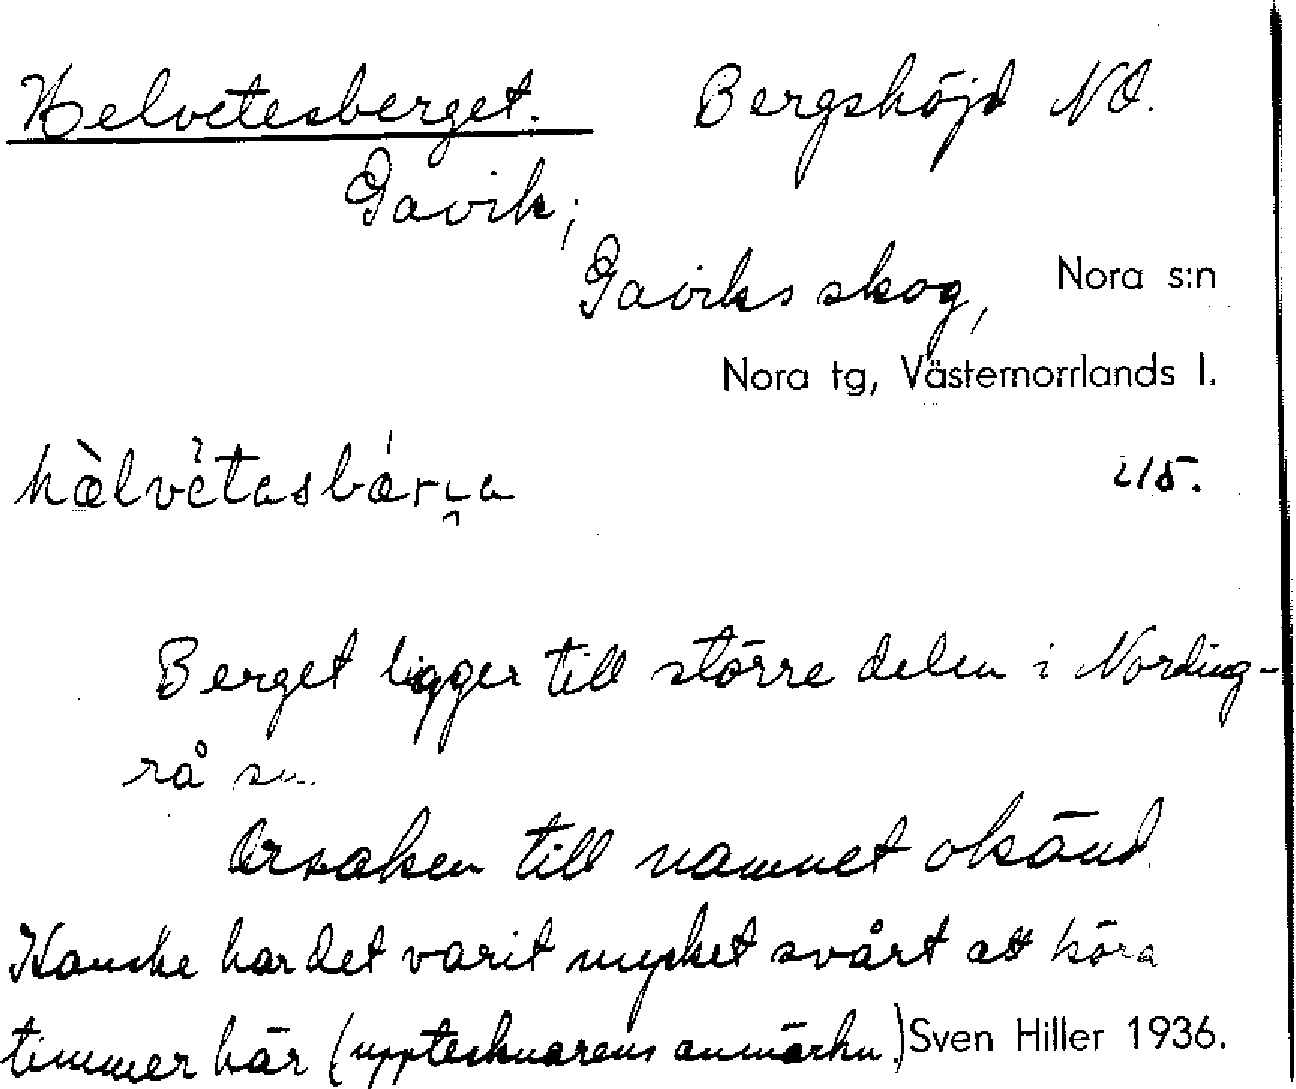 Helvetesberget. Bergshöjd NO.
Gavik;
Gaviks skog, Nora s:n
Nora tg, Västernorrlands l.
hæ̀lvètasbær̯a 215.
Berget ligger till större delen i Nording-
rå sn.
Orsaken till namnet okänd.
Kanske har det varit mycket svårt att köra
timmer här (upptecknarens anmärkn.) Sven Hiller 1936.